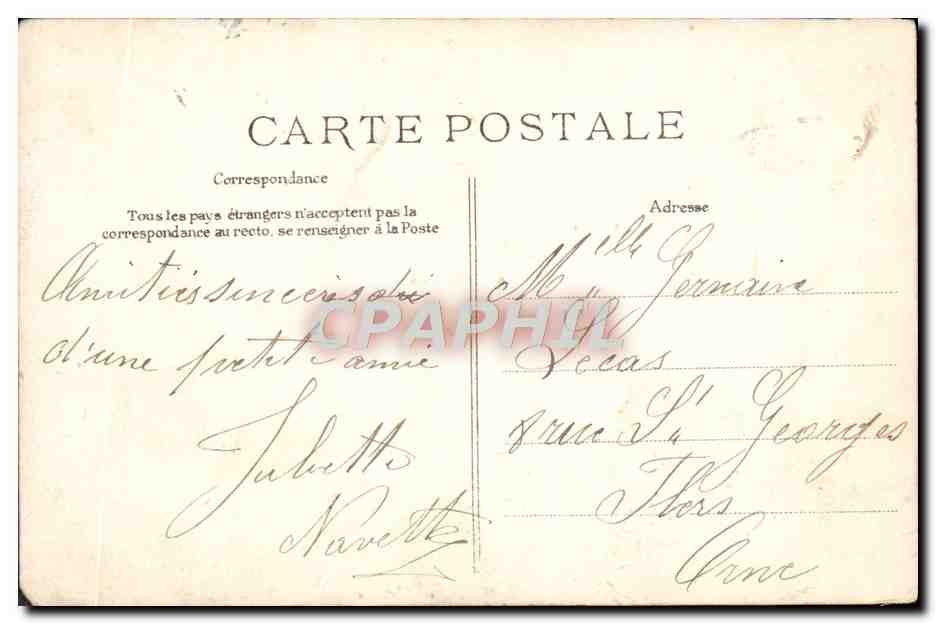 CARTE POSTALE
Correspondance
Tous les pays étrangers n'acceptent pas la
correspondance au recto, se renseigner à la Poste
Amitiés sincères
d'une petite amie
Juliette
Navette
Adresse
Melle Germaine
Lecas
8 rue St Georges
Flers
Orne
CPAPHIL